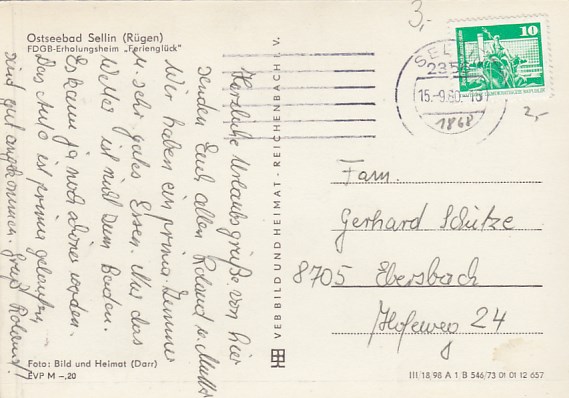 Ostseebad Sellin (Rügen)
FDGB-Erholungsheim „Ferienglück"
Herzliche Urlaubsgrüße von hier
senden Euch allen Roland u.
Wir haben ein prima Zimmer
u. sehr gutes Essen. Nur das
Wetter ist nicht zum Baden.
Es kann ja noch schöner werden.
Das Auto ist prima gelaufen,
sind gut angekommen. Gruß Roland!
Foto: Bild und Heimat (Darr)
EVP M –,20
VEB BILD UND HEIMAT · REICHENBACH I. V.
3,-
10
SELLIN
2356
15.-9.80-
1868
2,-
Fam.
Gerhard Schütze
8705 Ebersbach
Hofeweg 24
III/18/98 A 1 B 546/73 01 01 12 657